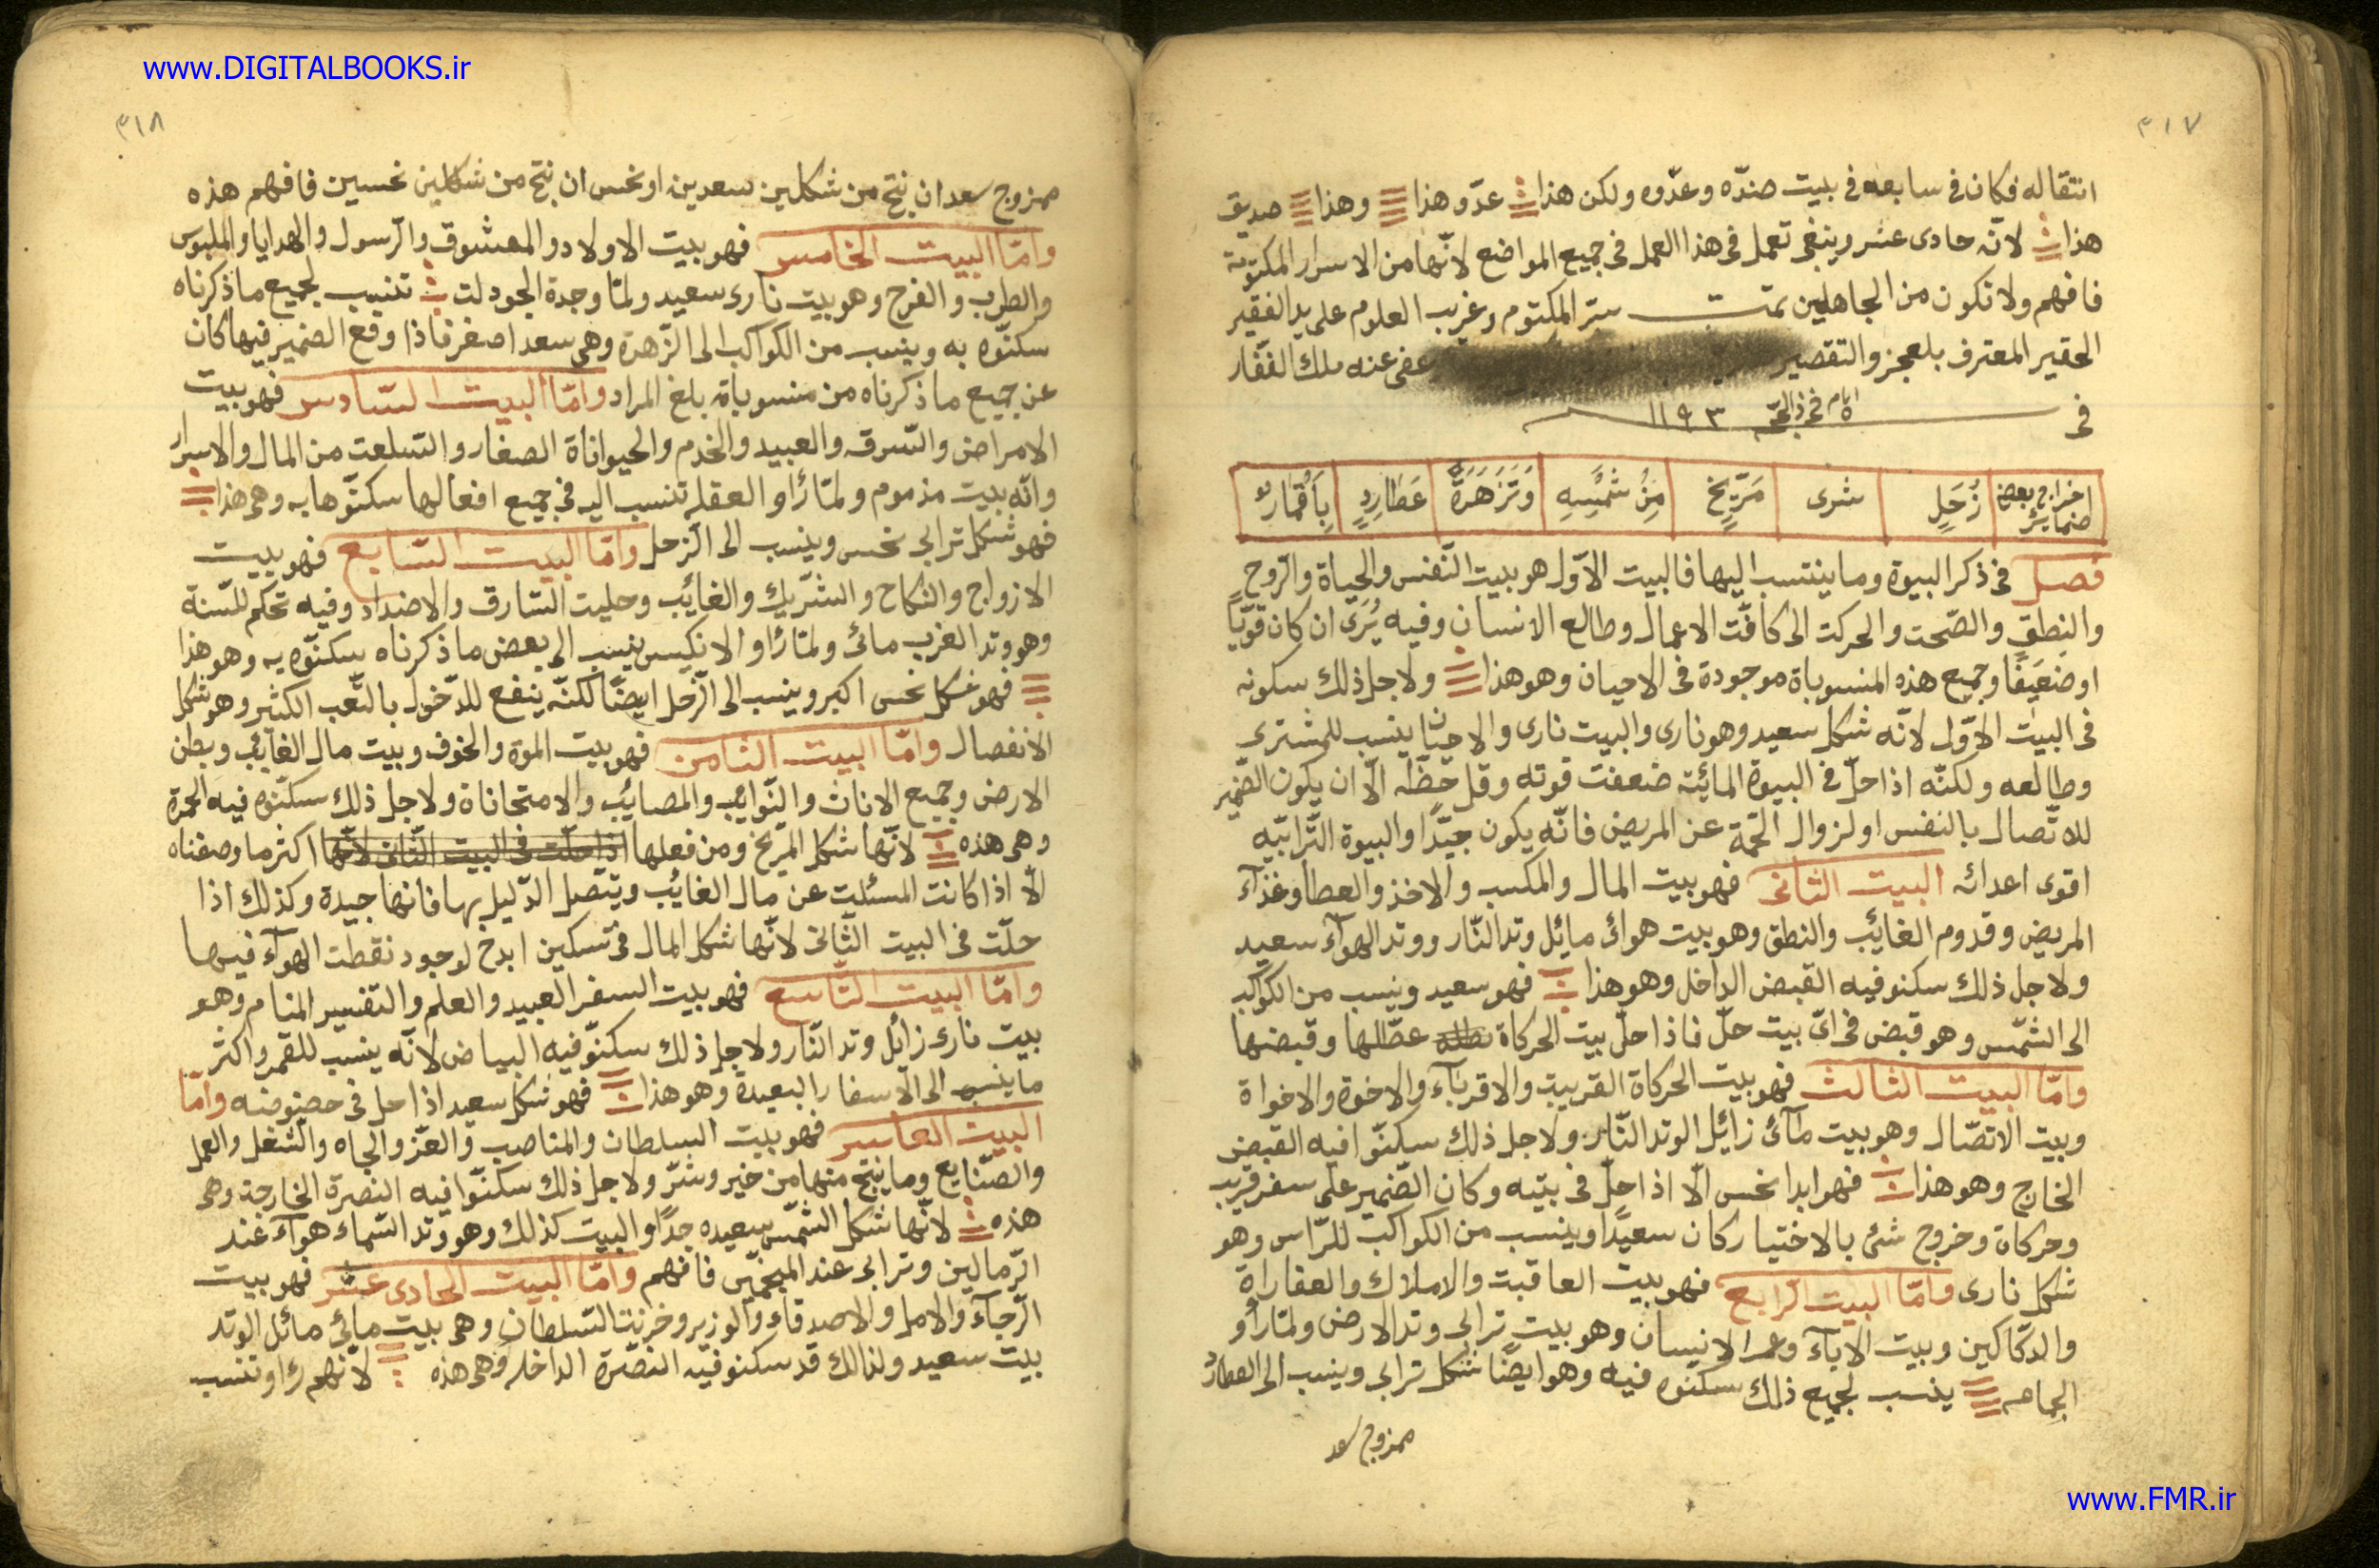 www.DIGITALBOOKS.ir
٣١٧
انتقاله فكان فى سابعه فى بيت ضدّه وعدّوه ولكن هذا عدّو هذا وهذا صديق
هذا لانّه حادى عشر وينبغى تعمل فى هذا العمل فى جميع المواضع لانّها من الاسرار المكتومة
فافهم ولا تكون من الجاهلين تمت ستر المكتوم وغريب العلوم على يد الفقير
الحقير المعترف بلعجز والتقصير عفى عنه ملك الغفّار
فى ايام فى ذالحجّه ١١٩٣
اخراج بعض ضمائر زُحَلٍ شرى مَرّيخ مِنْ شمْسِهِ وَتَزَهَرَةً عَطَارِدٍ بِاَقْمَار
فصل فى ذكر البيوة وما ينتسب اليها فالبيت الاوّل هو بيت النّفس والحياة والرّوح
والنطق والصّحت والحركت الى كافّت الاعمال وطالع الانسان وفيه يُرَى ان كان قويّاً
او ضعيفًا وجميع هذه المنسوباة موجودة فى الاحيان وهو هذا ولاجل ذلك سكونه
فى البيت الاوّل لانّه شكل سعيد وهو نارى والبيت نارى والاحيّان ينسب للمشترى
وطالعه ولكنّه اذا حلّ فى البيوة المائيّة ضعفت قوته وقل حظّه الّا ان يكون الضّمير
للاتّصال بالنفس او لزوال الحمّة عن المريض فانّه يكون جيّدًا والبيوة التّرابيّه
اقوى اعدائه البيت الثانى فهو بيت المال والمكسب والاخذ والعطا وغذآء
المريض وقدوم الغائب والنطق وهو بيت هوائ مائل وتد النّار ووتد الهوآء سعيد
ولاجل ذلك سكنو فيه القبض الداخل وهو هذا فهو سعيد وينسب من الكواكب
الى الشّمس وهو قبض فى اىّ بيت حلّ فاذا حلّ بيت الحركاة عطّالها وقبضها
وامّا البيت الثالث فهو بيت الحركاة القريبت والاقربآء والاخوة والاخواة
وبيت الاتصّال وهو بيت مآئ زائل الوتد النّار ولاجل ذلك سكنّوا فيه القبض
الخارج وهو هذا فهو ابدا نحس الّا اذا حلّ فى بيته وكان الضّمير على سفر قريب
وحركاة وخروج شئ بالاختيار كان سعيدًا وينسب من الكواكب للرّاس وهو
شكل نارى وامّا البيت الرّابع فهو بيت العاقبت والاملاك والعقاراة
والدكاكين وبيت الآباء وعمر الانسان وهو بيت ترابى وتد الارض ولمّا رأو
الجماعه ينسب لجميع ذلك سكنوه فيه وهو ايضًا شكل ترابى وينسب الى العطارد
ممزوج سعد
٣١٨
ممزوج سعد ان نتج من شكلين سعدين او نحس ان نتج من شكلين نحسين فافهم هذه
وامّا البيت الخامس فهو بيت الاولاد والمعشوق والرّسول والهدايا والملبوس
والطرب والفرح وهو بيت نارى سعيد ولمّا وجدة الجودلت تنسب لجميع ما ذكرناه
سكنّوه به وينسب من الكواكب الى الزّهرة وهى سعد اصغر فاذا وقع الضمير فيها كان
عن جميع ما ذكرناه من منسوباته بلغ المراد وامّا البيت السّادس فهو بيت
الامراض والسّرقه والعبيد والخدم والحيواناة الصغار والسّلعت من المال والاسرار
وانّه بيت مذموم ولمّا رأو العقله تنسب اليه فى جميع افعالها سكنّوها به وهى هذا
فهو شكل ترابى نحس وينسب الى الزّحل وامّا البيت السّابع فهو بيت
الازواج والنكاح والشّريك والغائب وحليت السّارق والاضداد وفيه تحكم للسّنة
وهو وتد الغرب مائ ولمّا رأو الانكيس ينسب الى بعض ما ذكرناه سكنّوه به وهو هذا
فهو شكل نحس اكبر وينسب الى الزّحل ايضًا لكنّه ينفع للدّخول بالتّعب الكثير وهو شكل
الانفصال وامّا البيت الثامن فهو بيت الموة والخوف وبيت مال الغائب وبطن
الارض وجميع الاناث والنّوائب والمصائب والامتحاناة ولاجل ذلك سكنّوه فيه الحمرة
وهى هذه لانّها شكل المرّيخ ومن فعلها اذا حلّت فى البيت الثّانى لانّها اكثر ما وصفناه
الّا اذا كانت المسئلت عن مال الغائب ويتّصل الدّليل بها فانّها جيدة وكذلك اذا
حلّت فى البيت الثّانى لانّها شكل المال فى تسكين ابدح لوجود نقطت الهوآء فيها
وامّا البيت التّاسع فهو بيت السفر العبيد والعلم والتفسير المنام وهو
بيت نارى زائل وتد النّار ولاجل ذلك سكنّو فيه البياض لانّه ينسب للقمر واكثر
ما ينسب الى الاسفار البعيدة وهو هذا فهو شكل سعيد اذا حل فى حضوضه وامّا
البيت العاشر فهو بيت السلطان والمناصب والعزّ والجاه والشّغل والعمل
والصّنايع وما ينتج منها من خير وشرّ ولاجل ذلك سكنّوا فيه النصرة الخارجة وهى
هذه لانّها شكل الشمّس سعيده جدًّا والبيت كذلك وهو وتد السّماء هوآء عند
الرّمالين وترابى عند المنجّمين فافهم وامّا البيت الحادى عشر فهو بيت
الرّجآء والامل والاصدقاء والوزير وخزنت السّلطان وهى بيت مائى مائل الوتد
بيت سعيد ولذالك قد سكنو فيه النصّرة الداخله وهى هذه لانّهم رأو تنسب
www.FMR.ir